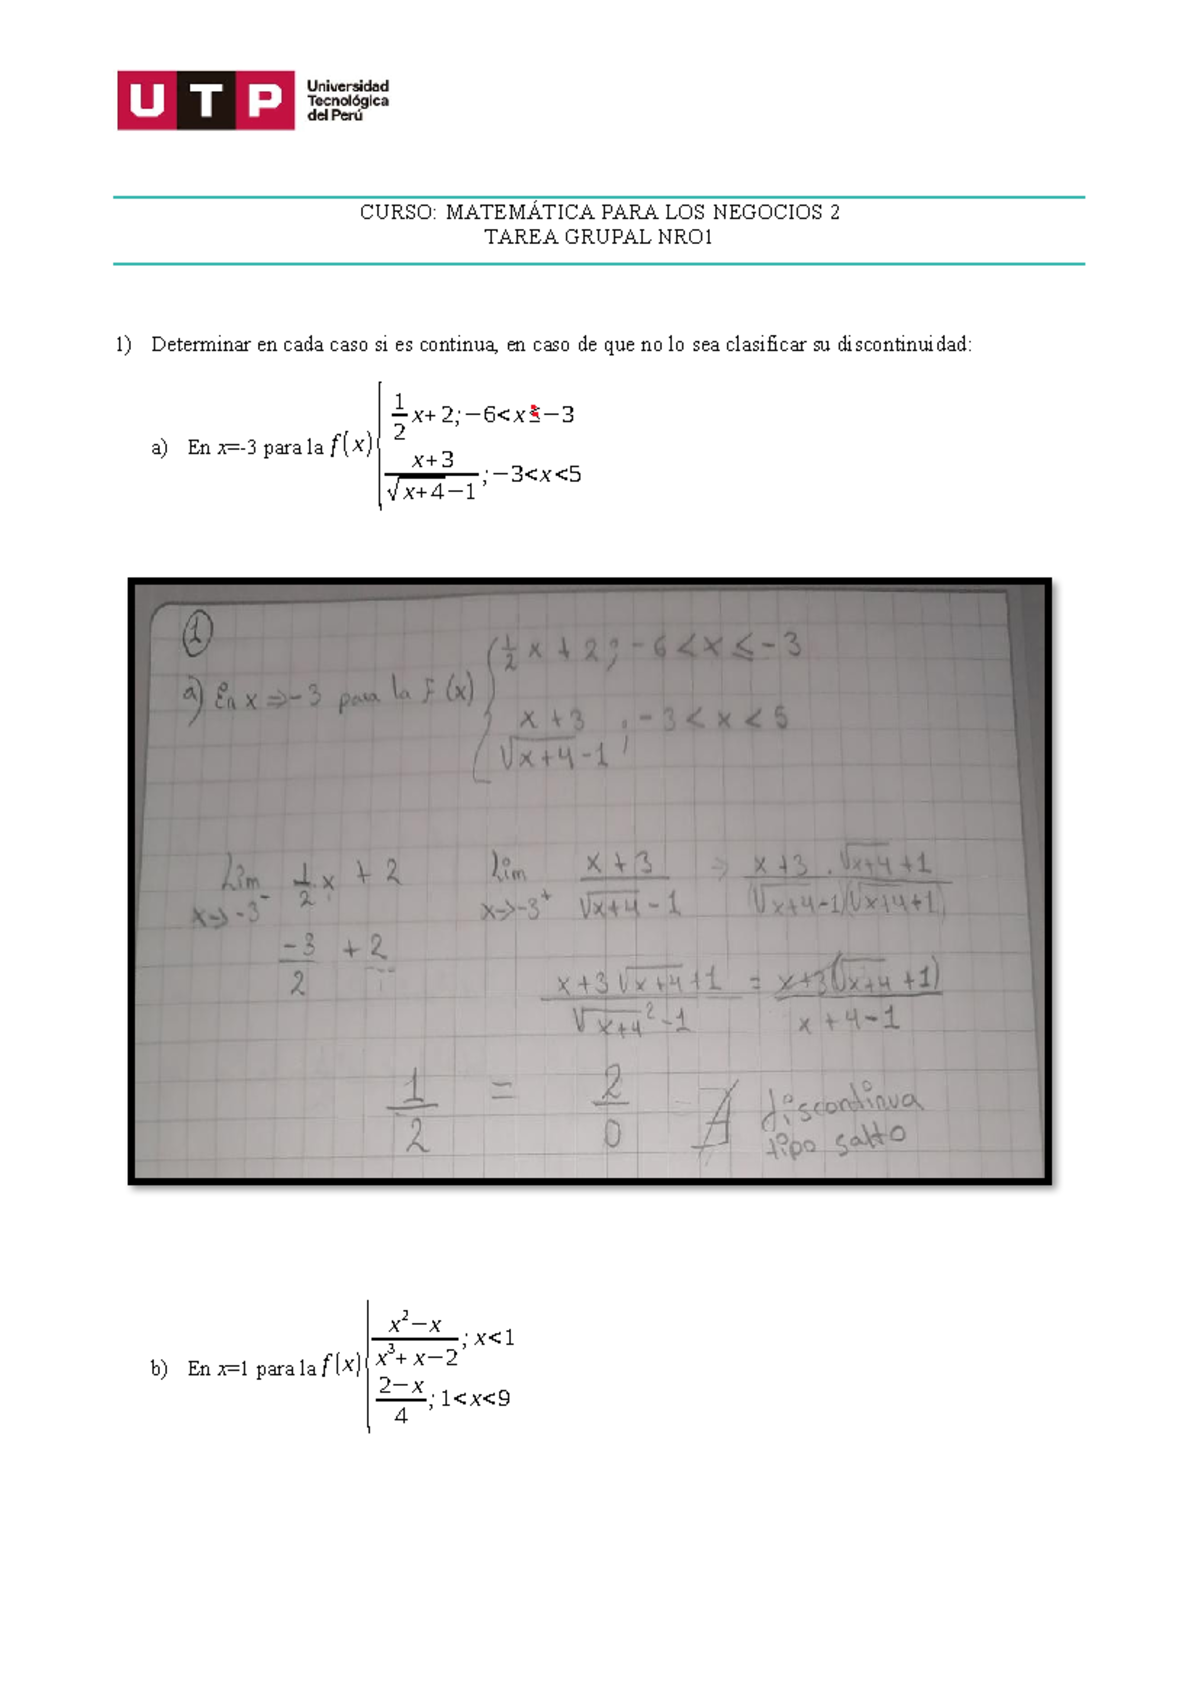 UTP Universidad
Tecnológica
del Perú
CURSO: MATEMÁTICA PARA LOS NEGOCIOS 2
TAREA GRUPAL NRO1
1) Determinar en cada caso si es continua, en caso de que no lo sea clasificar su discontinuidad:
a) En x=-3 para la f(x) { 1/2 x+2; −6<x≤−3
x+3/√x+4−1; −3<x<5
1
a) En x => -3 para la F(x) { 1/2 x + 2; -6 < x ≤ -3
x+3/√x+4-1; -3 < x < 5
Lim x→-3⁻ 1/2 x + 2 Lim x→-3⁺ x+3/√x+4-1 → x+3 . √x+4+1/(√x+4-1)(√x+4+1)
-3/2 + 2
x+3√x+4+1/√x+4²-1 = x+3(√x+4+1)/x+4-1
1/2 = 2/0 ∄ discontinua
tipo salto
b) En x=1 para la f(x) { x²−x/x³+x−2; x<1
2−x/4; 1<x<9